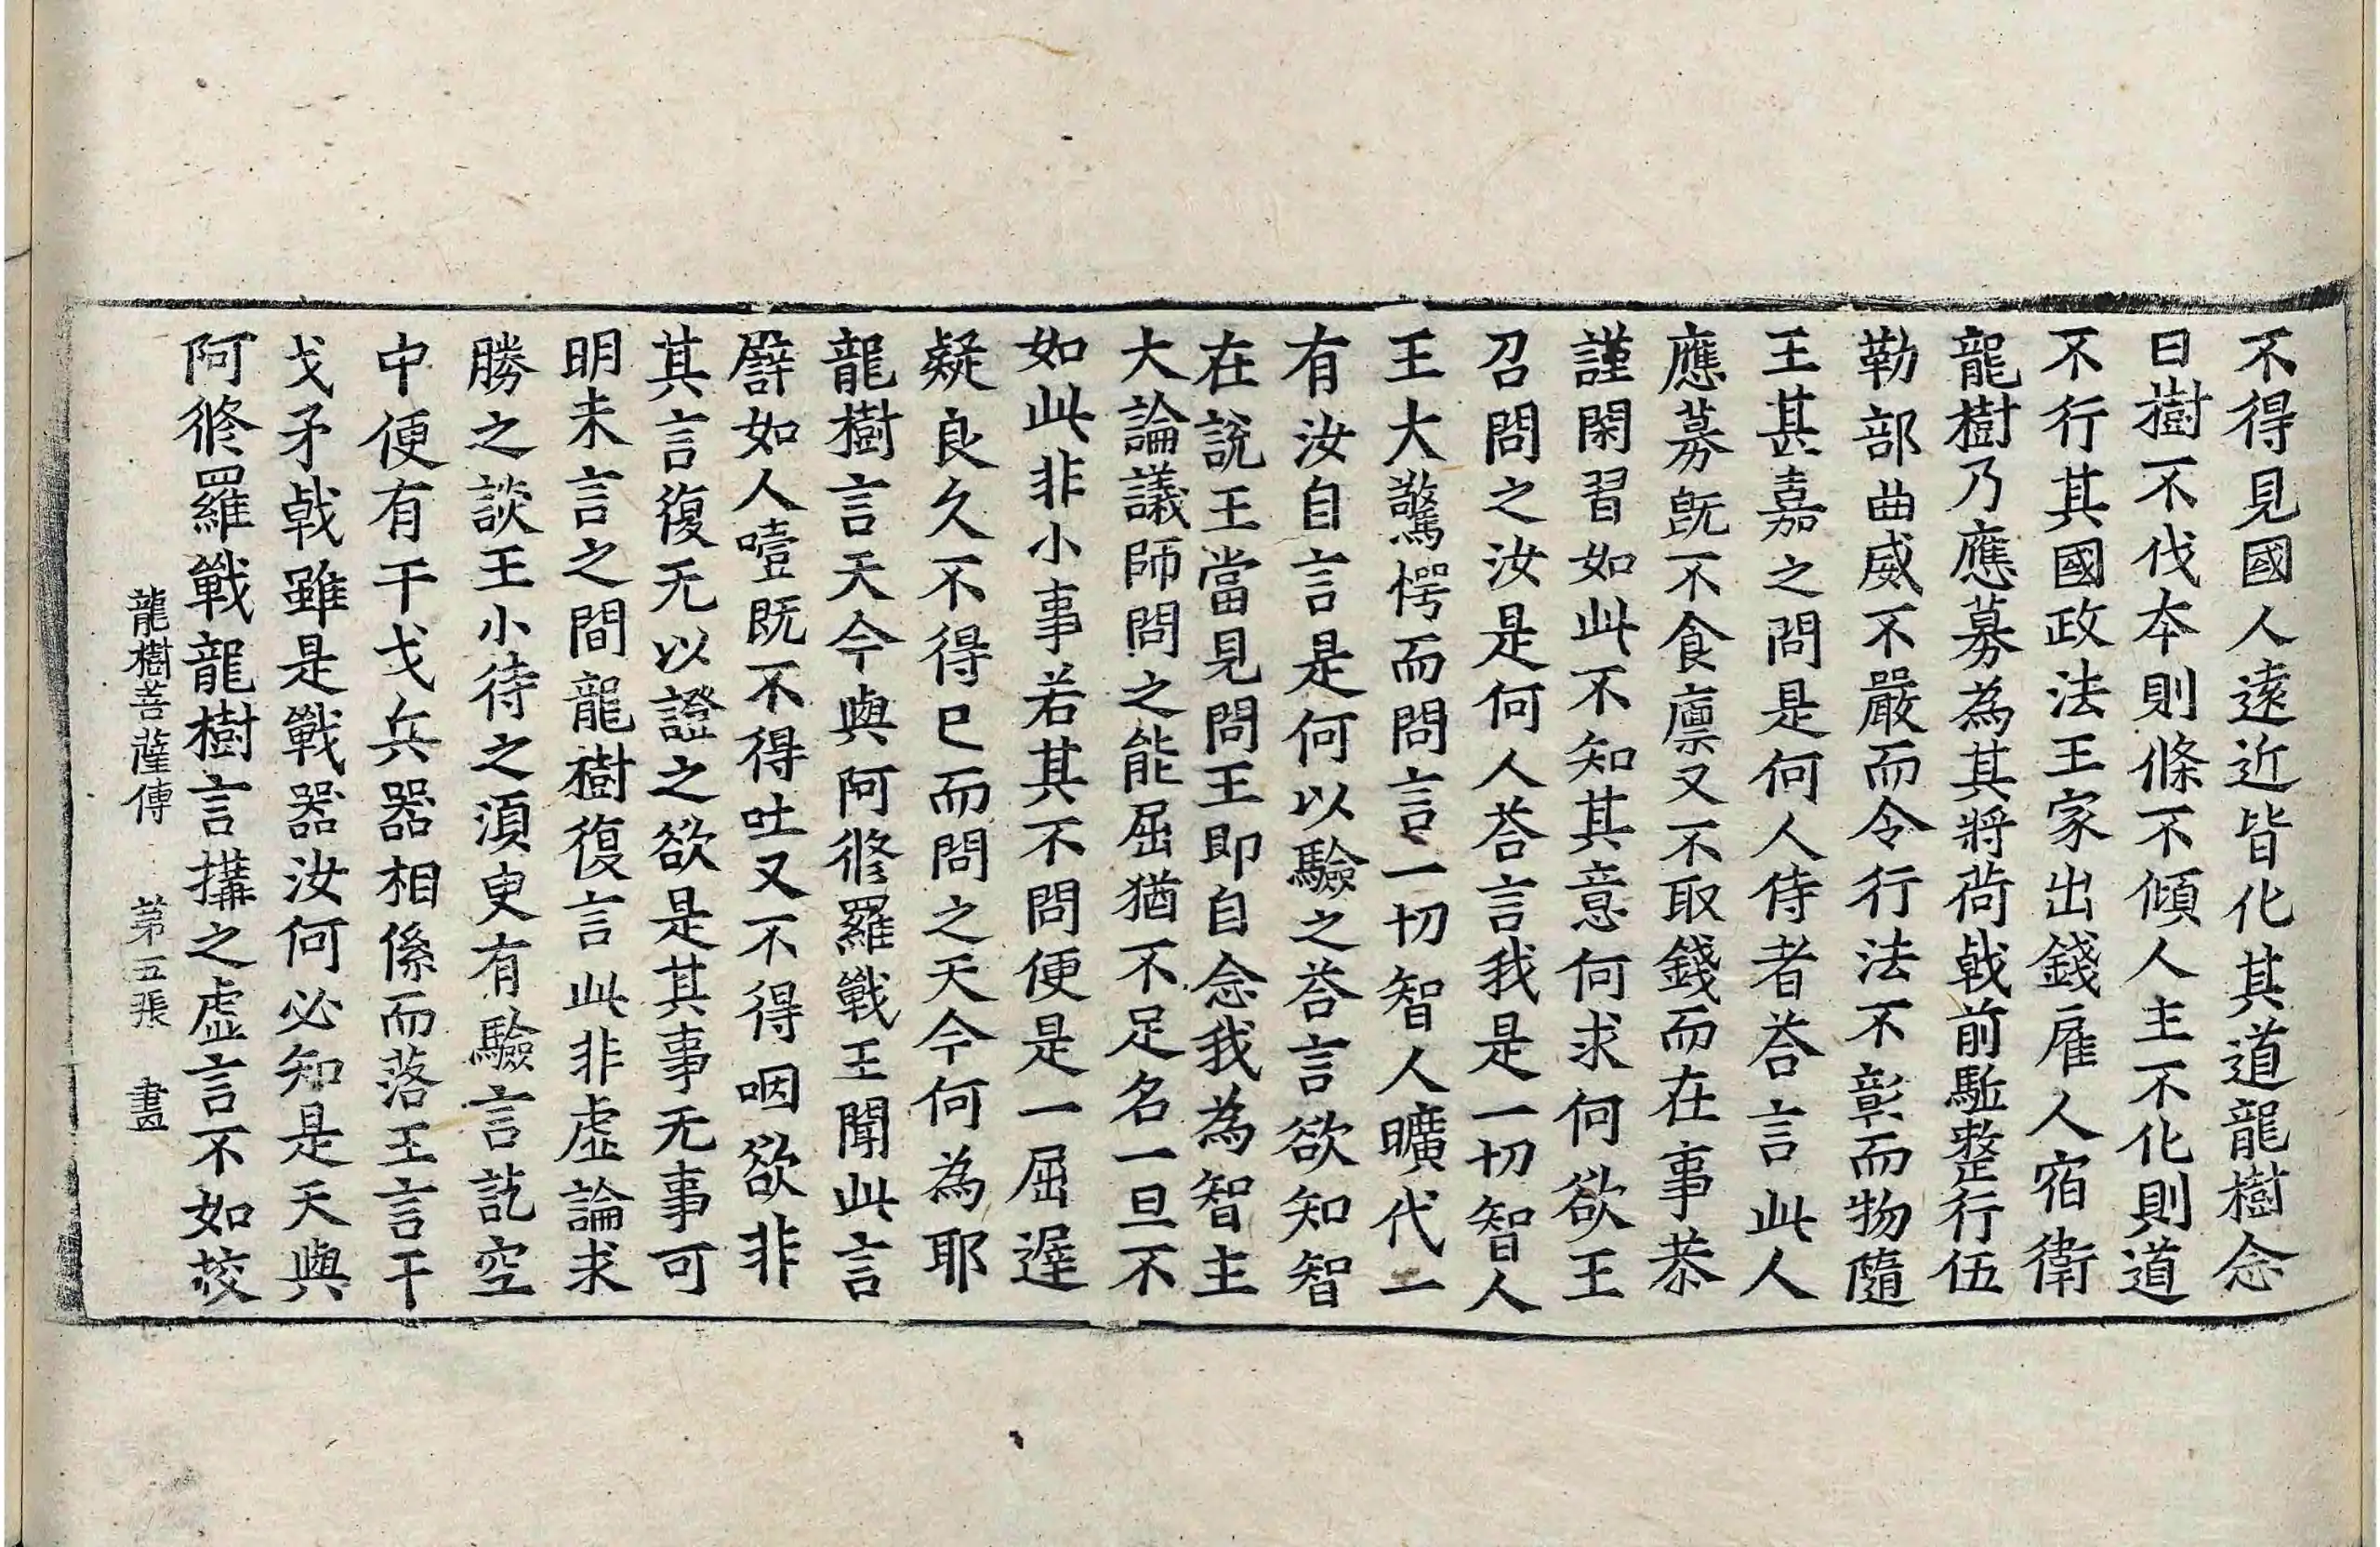 不得見國人遠近皆化其道龍樹念
曰樹不伐本則條不傾人主不化則道
不行其國政法王家出錢雇人宿衛
龍樹乃應募為其將荷戟前駈整行伍
勒部曲威不嚴而令行法不彰而物隨
王甚嘉之問是何人侍者荅言此人
應募旣不食廪又不取錢而在事恭
謹閑習如此不知其意何求何欲王
召問之汝是何人荅言我是一切智人
王大驚愕而問言一切智人曠代一
有汝自言是何以驗之荅言欲知智
在說王當見問王即自念我為智主
大論議師問之能屈猶不足名一旦不
如此非小事若其不問便是一屈遅
疑良久不得已而問之天今何為耶
龍樹言天今與阿修羅戰王聞此言
譬如人噎既不得吐又不得咽欲非
其言復无以證之欲是其事无事可
明未言之間龍樹復言此非虛論求
勝之談王小待之湏臾有驗言訖空
中便有干戈兵器相係而落王言干
戈矛戟雖是戰器汝何必知是天與
阿修羅戰龍樹言搆之虛言不如挍
龍樹菩薩傳 第五張 晝